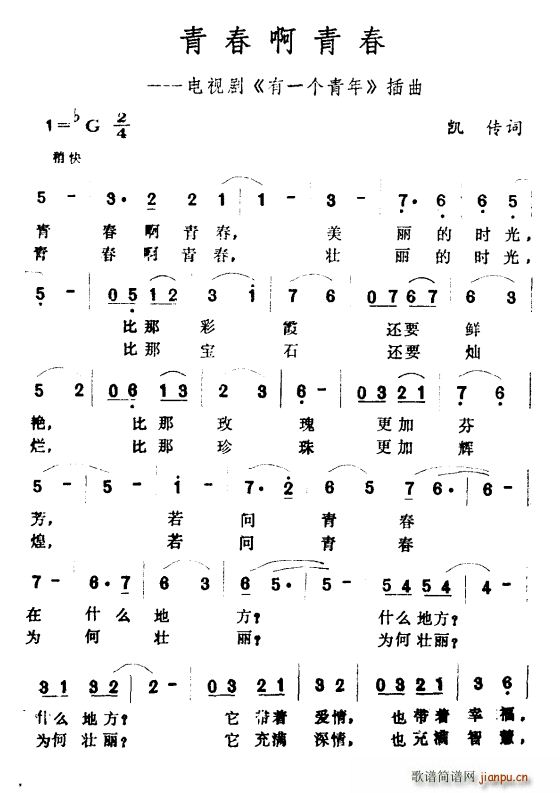 青春啊青春
----电视剧《有一个青年》插曲
1=♭G 2/4
凯 传词
稍快
5 - | 3· 2 | 2 1 | 1 - | 3 - | 7· 6 | 6 5 |
青 春啊 青春, 美 丽的 时光,
青 春啊 青春, 壮 丽的 时光,
5 - | 05 12 | 3 i | 7 6 | 0767 | 6 3 |
比那 彩 霞 还要 鲜
比那 宝 石 还要 灿
5 2 | 06 13 | 2 3 | 6 5 | 03 21 | 7 6 |
艳, 比那 玫 瑰 更加 芬
烂, 比那 珍 珠 更加 辉
5 - | 5 - | i - | 7· 2 | 6 5 | 2 6· | 6 - |
芳, 若 问 青 春
煌, 若 问 青 春
7 - | 6· 7 | 6 3 | 6 5· | 5 - | 5454 | 4 - |
在 什么 地 方? 什么地方?
为 何 壮 丽? 为何壮丽?
31 32 | 2 - | 03 21 | 3 2 | 03 21 | 3 6 |
什么 地方? 它 带着 爱情, 也 带着 幸福,
为何 壮丽? 它 充满 深情, 也 充满 智慧,
歌谱简谱网
jianpu.cn